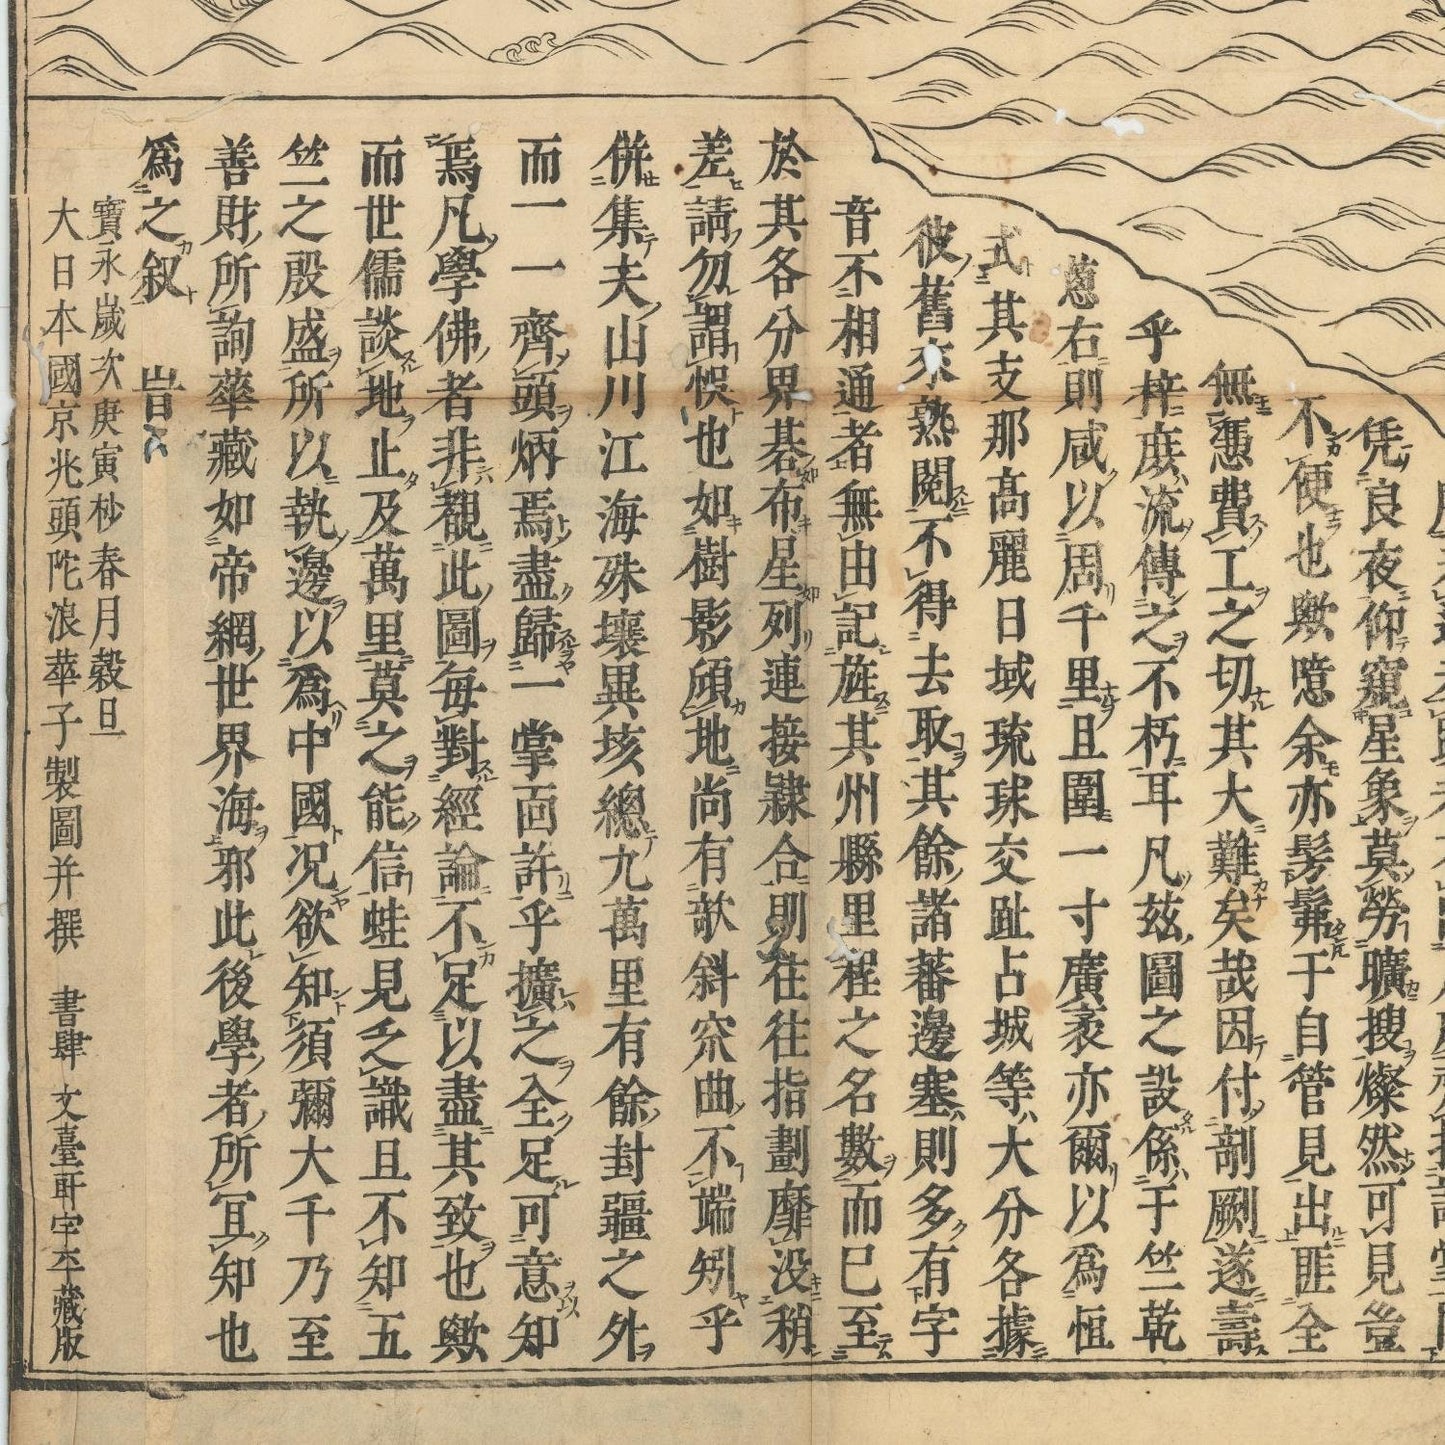 凭良夜仰窺星象莫勞曠搜燦然可見豈
不便也歟噫余亦髣髴于自管見出匪全
無慿費工之切其大難矣哉因付剞劂遂壽
乎梓庶流傳之不朽耳凡茲圖之設係于竺乾
蔥右則咸以周千里且圍一寸廣袤亦爾以爲恒
式其支那高麗日域琉球交趾占城等大分各據
彼舊來熟閱不得去取其餘諸蕃邊塞則多有字
音不相通者無由記旌其州縣里程之名數而已至
於其各分界碁布星列連接隷合則往往指劃靡没稍
差請勿謂悞也如樹影頎地尚有欹斜穴曲不端矧乎
併集夫山川江海殊壤異垓總九萬里有餘封疆之外
而一一齊頭炳焉盡歸一掌面許乎擴之全足可意知
焉凡學佛者非覩此圖每對經論不足以盡其致也歟
而世儒談地止及萬里莫之能信蛙見乏識且不知五
竺之殷盛所以執邊以爲中國况欲知須彌大千乃至
善財所詢華藏如帝網世界海邪此後學者所冝知也
爲之叙 旹
寶永歲次庚寅杪春月穀旦
大日本國京兆頭陀浪華子製圖并撰 書肆 文臺軒宇平藏版